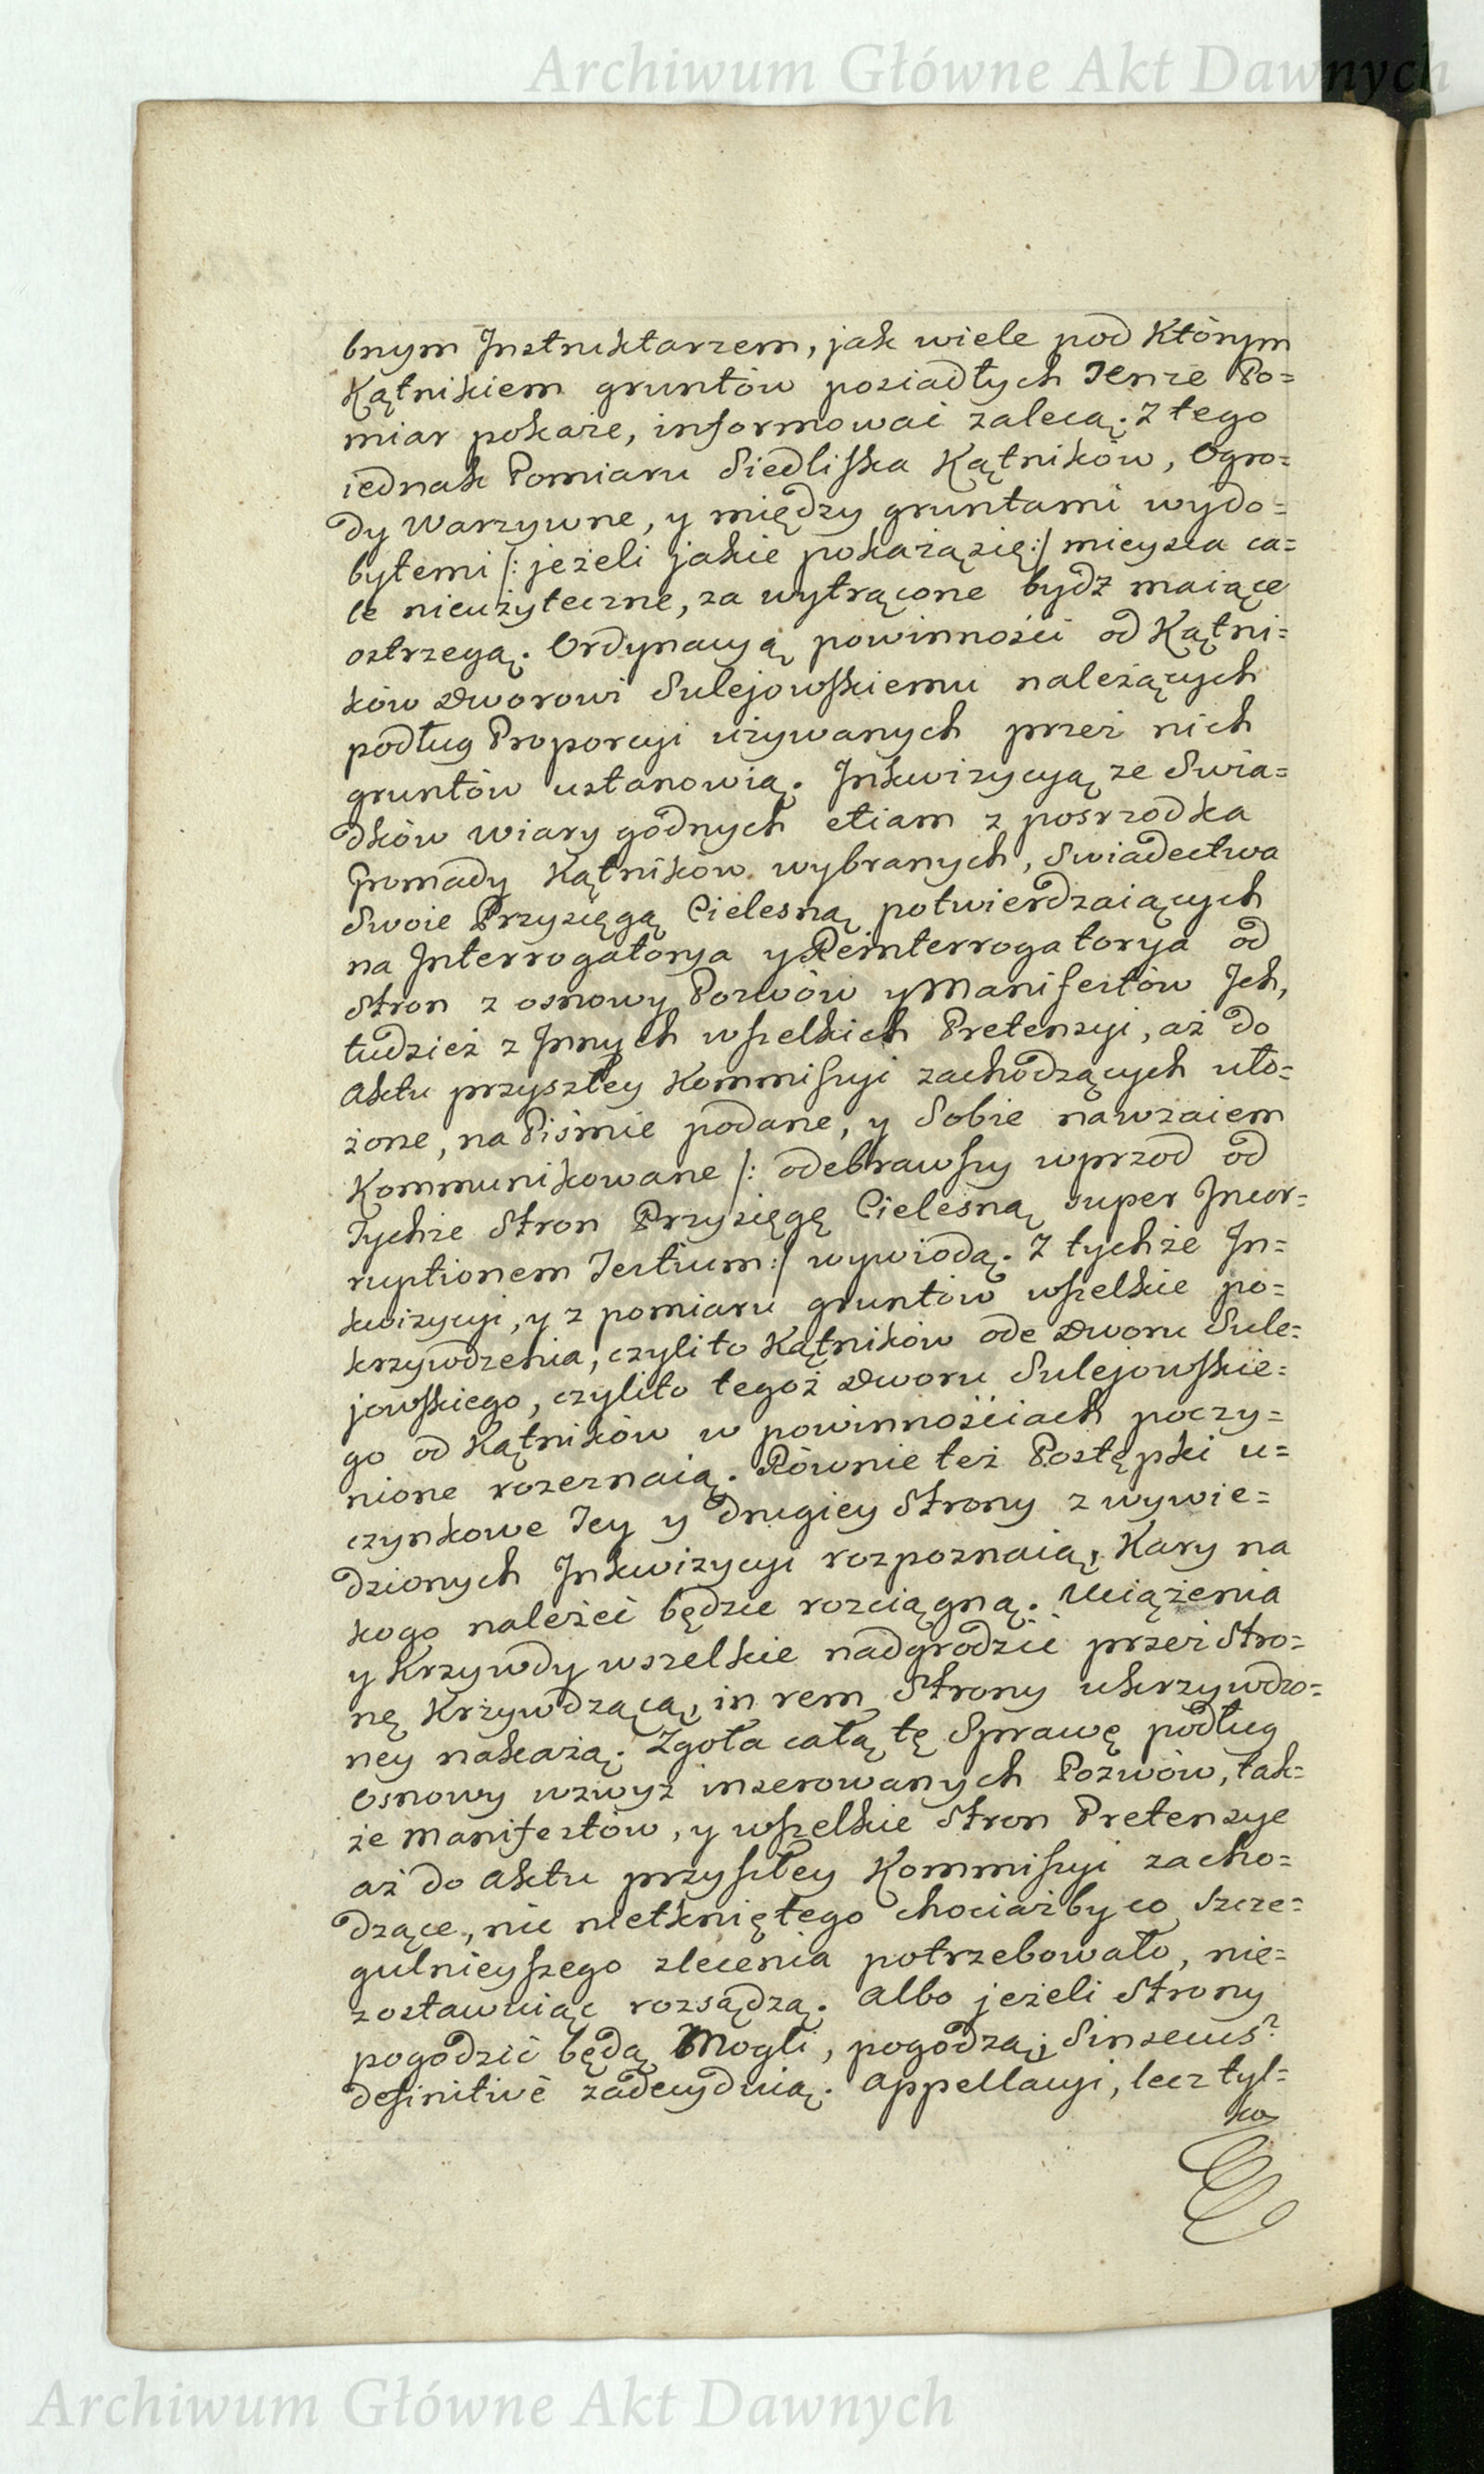 Archiwum Główne Akt Dawnych
bnym Instruktarzem, jak wiele pod Którym
Kątnikiem gruntów posiadłych Tenże Po=
miar pokaże, informować zalecą. Z tego
iednak Pomiaru Siedliska Kątników, Ogro=
dy Warzywne, y między gruntami wydo=
bytemi /: jeżeli jakie pokażą się :/ mieysca ca=
le nieużyteczne, za wytrącone bydź maiące
ostrzegą. Ordynacyą powinności od Kątni=
ków Dworowi Sulejowskiemu należących
podług Proporcyi używanych przez nich
gruntów ustanowią. Inkwizycyą ze Świa=
dków wiary godnych etiam z posrzodka
Gromady Kątników wybranych, Swiadectwa
Swoie Przysięgą Cielesną potwierdzaiących
na Interrogatorya y Reinterrogatorya od
Stron z osnowy Pozwów y Manifestów Ich,
tudzież z Innych wszelkich Pretensyi, aż do
Aktu przyszłey Kommissyi zachodzących uło=
żone, na Piśmie podane, y Sobie nawzaiem
Kommunikowane /: odebrawszy wprzod od
Tychże Stron Przysięgę Cielesną super Incor=
ruptionem Testium :/ wywiodą. Z tychże In=
kwizycyi, y z pomiaru gruntów wszelkie po=
krzywdzenia, czyli to Kątników ode Dworu Sule=
jowskiego, czyli to tegoż Dworu Sulejowskie=
go od Kątników w powinnościach poczy=
nione rozeznaią. Równie też Postępki u=
czynkowe Tey y drugiey Strony z wywie=
dzionych Inkwizycyi rozpoznaią, Kary na
kogo należeć będzie rozciągną. Uciążenia
y Krzywdy wszelkie nadgrodzić przez Stro=
nę Krzywdzącą, in rem Strony ukrzywdzo=
ney nakażą. Zgoła całą tę Sprawę podług
Osnowy wzwyż inserowanych Pozwów, tak=
że Manifestów, y wszelkie Stron Pretensye
aż do Aktu przyszłey Kommissyi zacho=
dzące, nic nietkniętego chociażby co szcze=
gulnieyszego zlecenia potrzebowało, nie=
zostawuiąc rozsądzą. Albo jeżeli Strony
pogodzić będą Mogli, pogodzą; Sinsecus
definitivè zadecyduią. Appellacyi, lecz tyl=
ko
Archiwum Główne Akt Dawnych